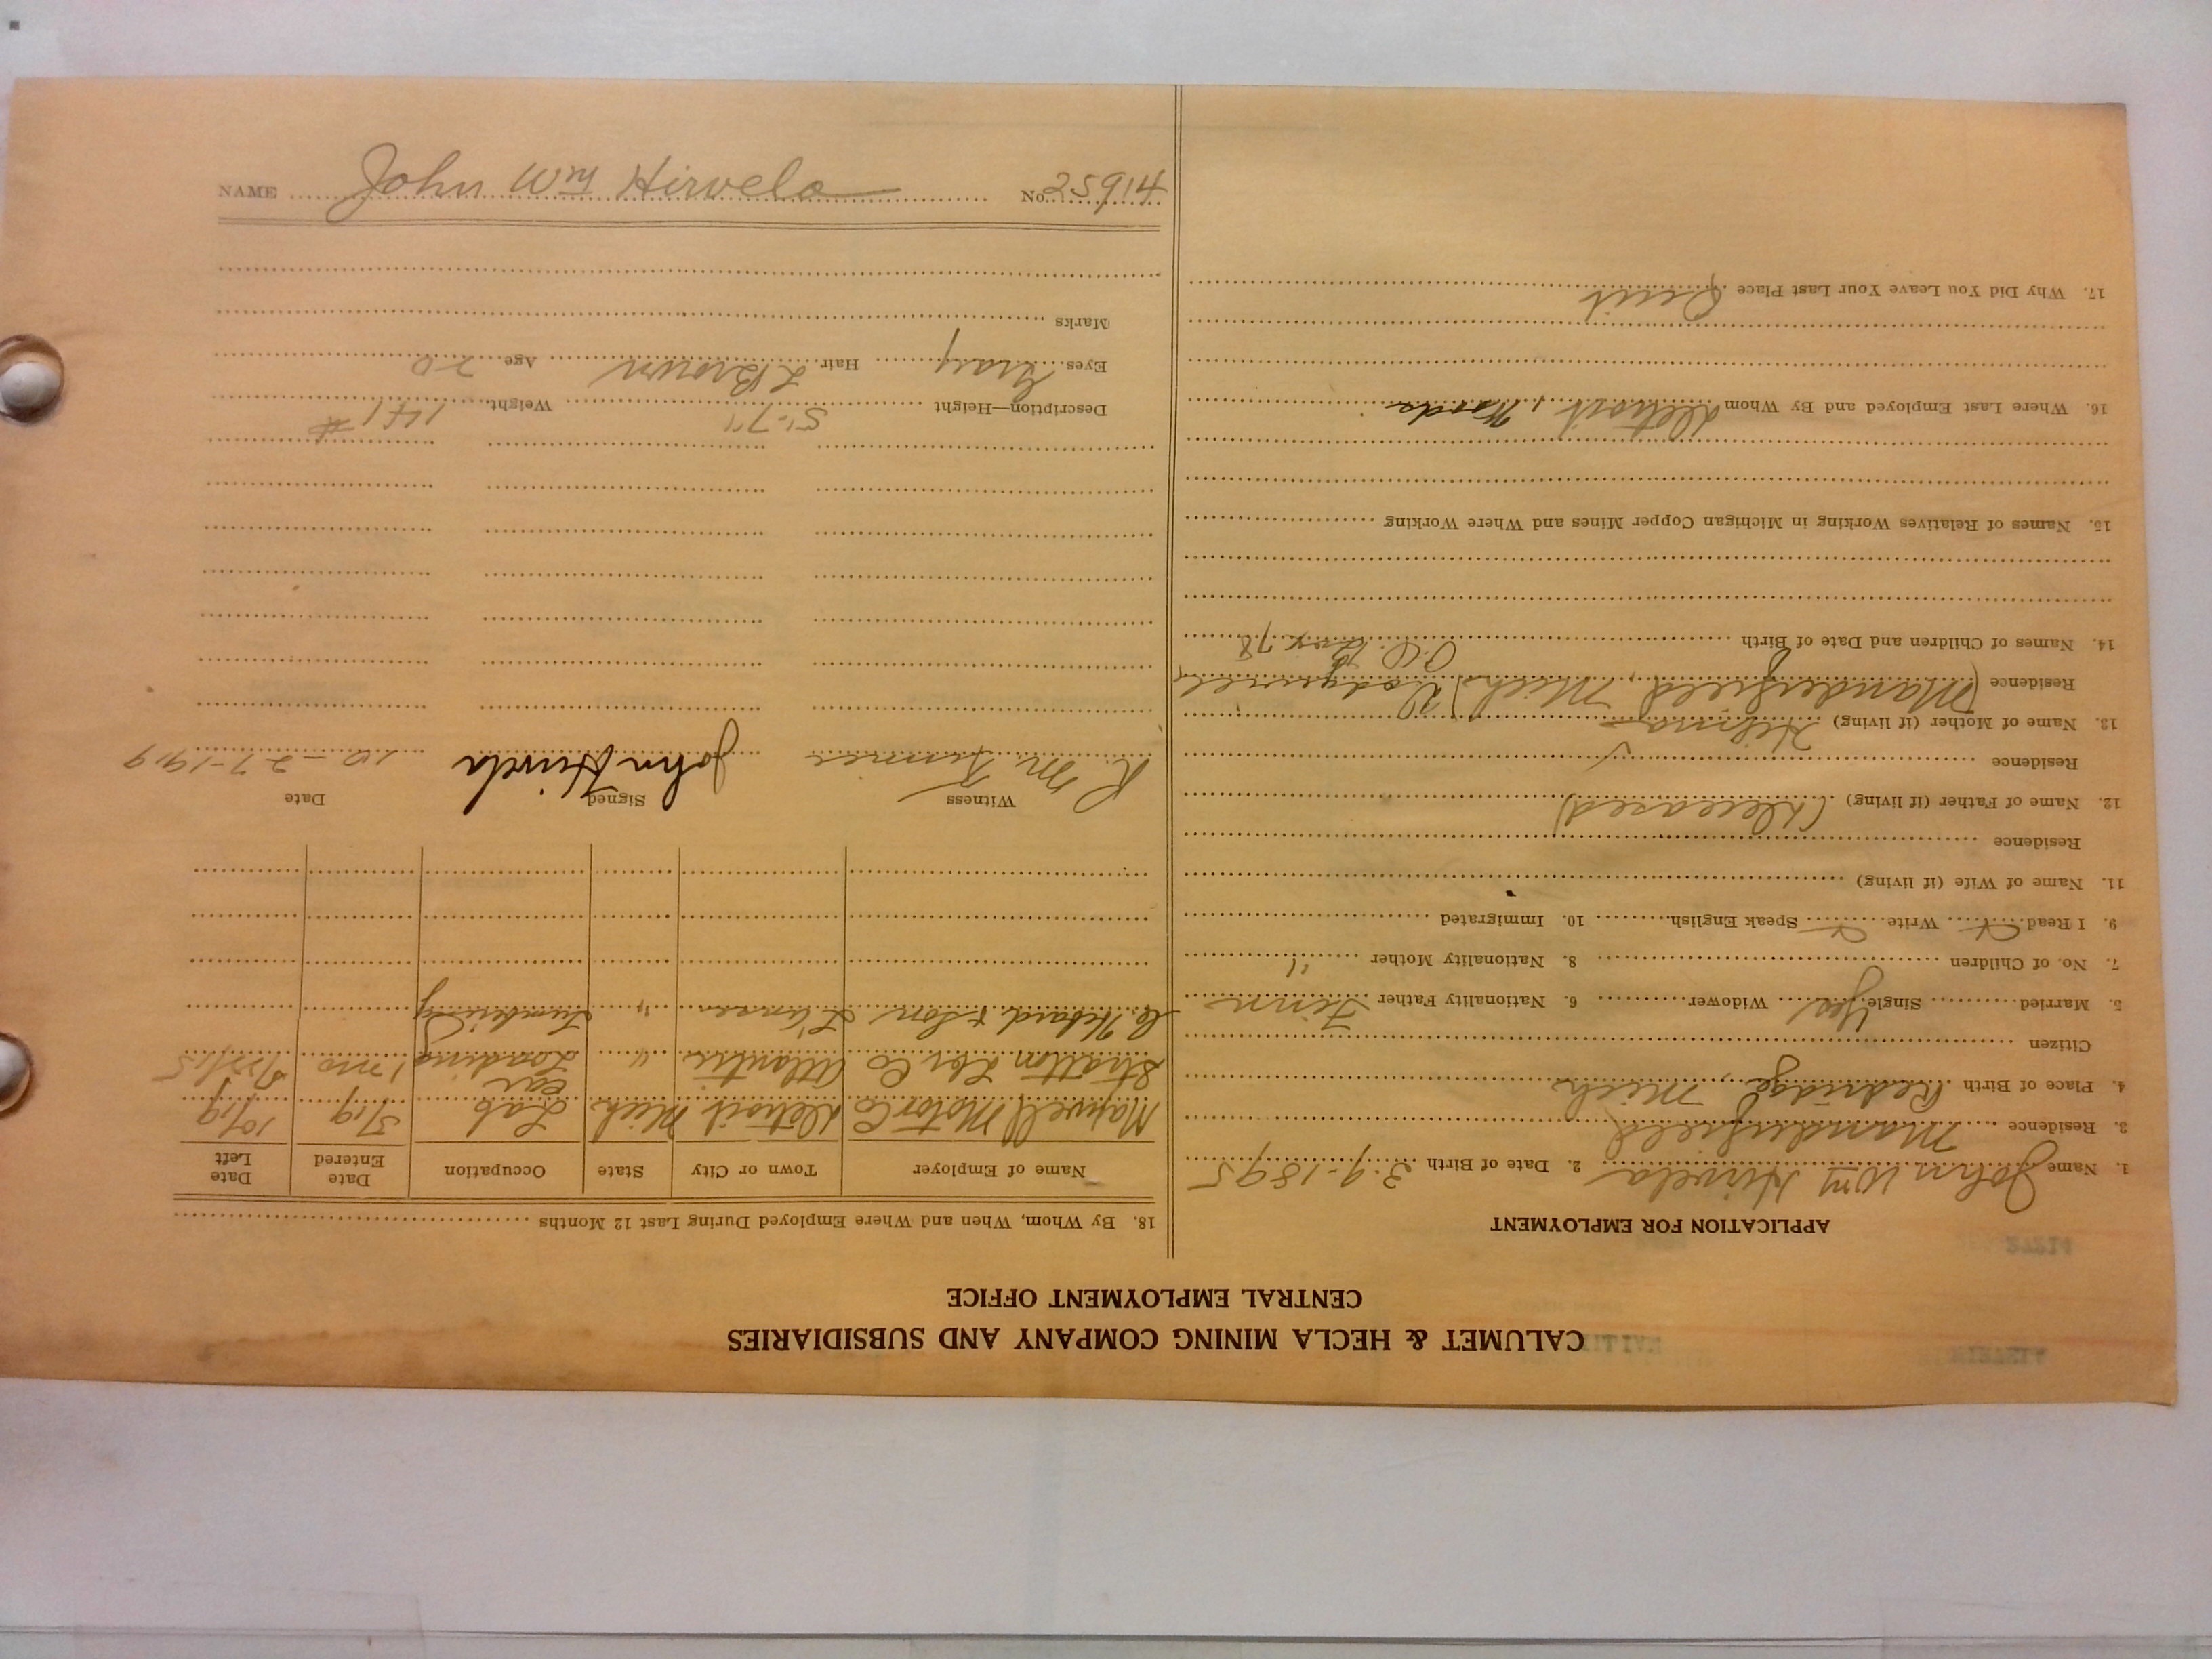 CALUMET & HECLA MINING COMPANY AND SUBSIDIARIES
CENTRAL EMPLOYMENT OFFICE
APPLICATION FOR EMPLOYMENT
1. Name John Wm Hirvela 2. Date of Birth 3-9-1895
3. Residence Manderfield
4. Place of Birth Redridge, Mich
Citizen
5. Married Single Yes Widower 6. Nationality Father Finn
7. No. of Children 8. Nationality Mother "
9. I Read Write Speak English 10. Immigrated
11. Name of Wife (if living)
Residence
12. Name of Father (if living) (Deceased)
Residence
13. Name of Mother (if living) Helma
Residence (Manderfield, Mich)
14. Names of Children and Date of Birth O.C. Box 78
15. Names of Relatives Working in Michigan Copper Mines and Where Working
16. Where Last Employed and By Whom Detroit,
17. Why Did You Leave Your Last Place Quit
18. By Whom, When and Where Employed During Last 12 Months
Name of Employer Town or City State Occupation Date Entered Date Left
Maxwell Motor Co Detroit Mich Lab 3/19 10/19
Stratton Lbr Co Atlantic " Car Loading 1 mo
C. Hebard & Son L'anse " Lumbering
Witness Signed Date
R. M. John Hirvela 10-27-1919
Description—Height 5'-7" Weight 141#
Eyes Gray Hair L Brown Age 20
Marks
NAME John Wm Hirvela No. 25914